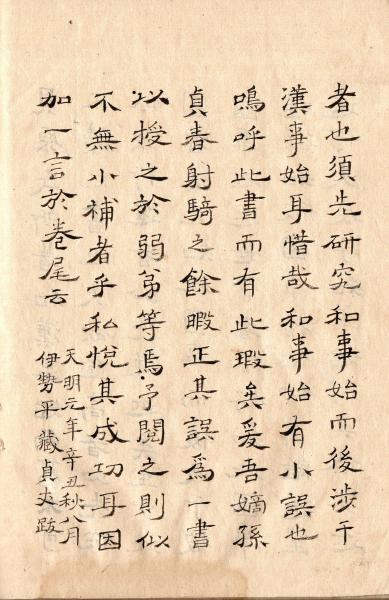 者也須先研究和事始而後涉于
漢事始耳惜哉和事始有小誤也
嗚呼此書而有此瑕矣爰吾嫡孫
貞春射騎之餘暇正其誤爲一書
以授之於弱弟等焉予閱之則似
不無小補者乎私悅其成功耳因
加一言於卷尾云
天明元年辛丑秋八月
伊勢平藏貞丈跋